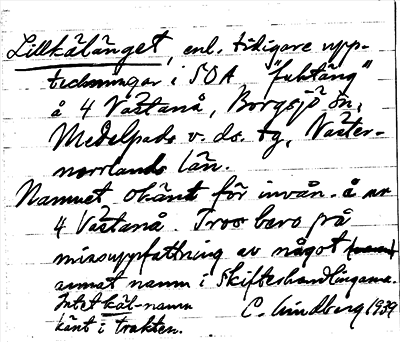 Lillkälänget, enl. tidigare upp-
teckningar i SOA "faktäng"
å 4 Västanå, Borgsjö sn,
Medelpads v. ds. tg, Väster-
norrlands län.
Namnet okänt för invån. å nr
4 Västanå. Tros bero på
missuppfattning av något
annat namn i skifteshandlingarna.
Intet käl-namn C. Lindberg 1939
känt i trakten.